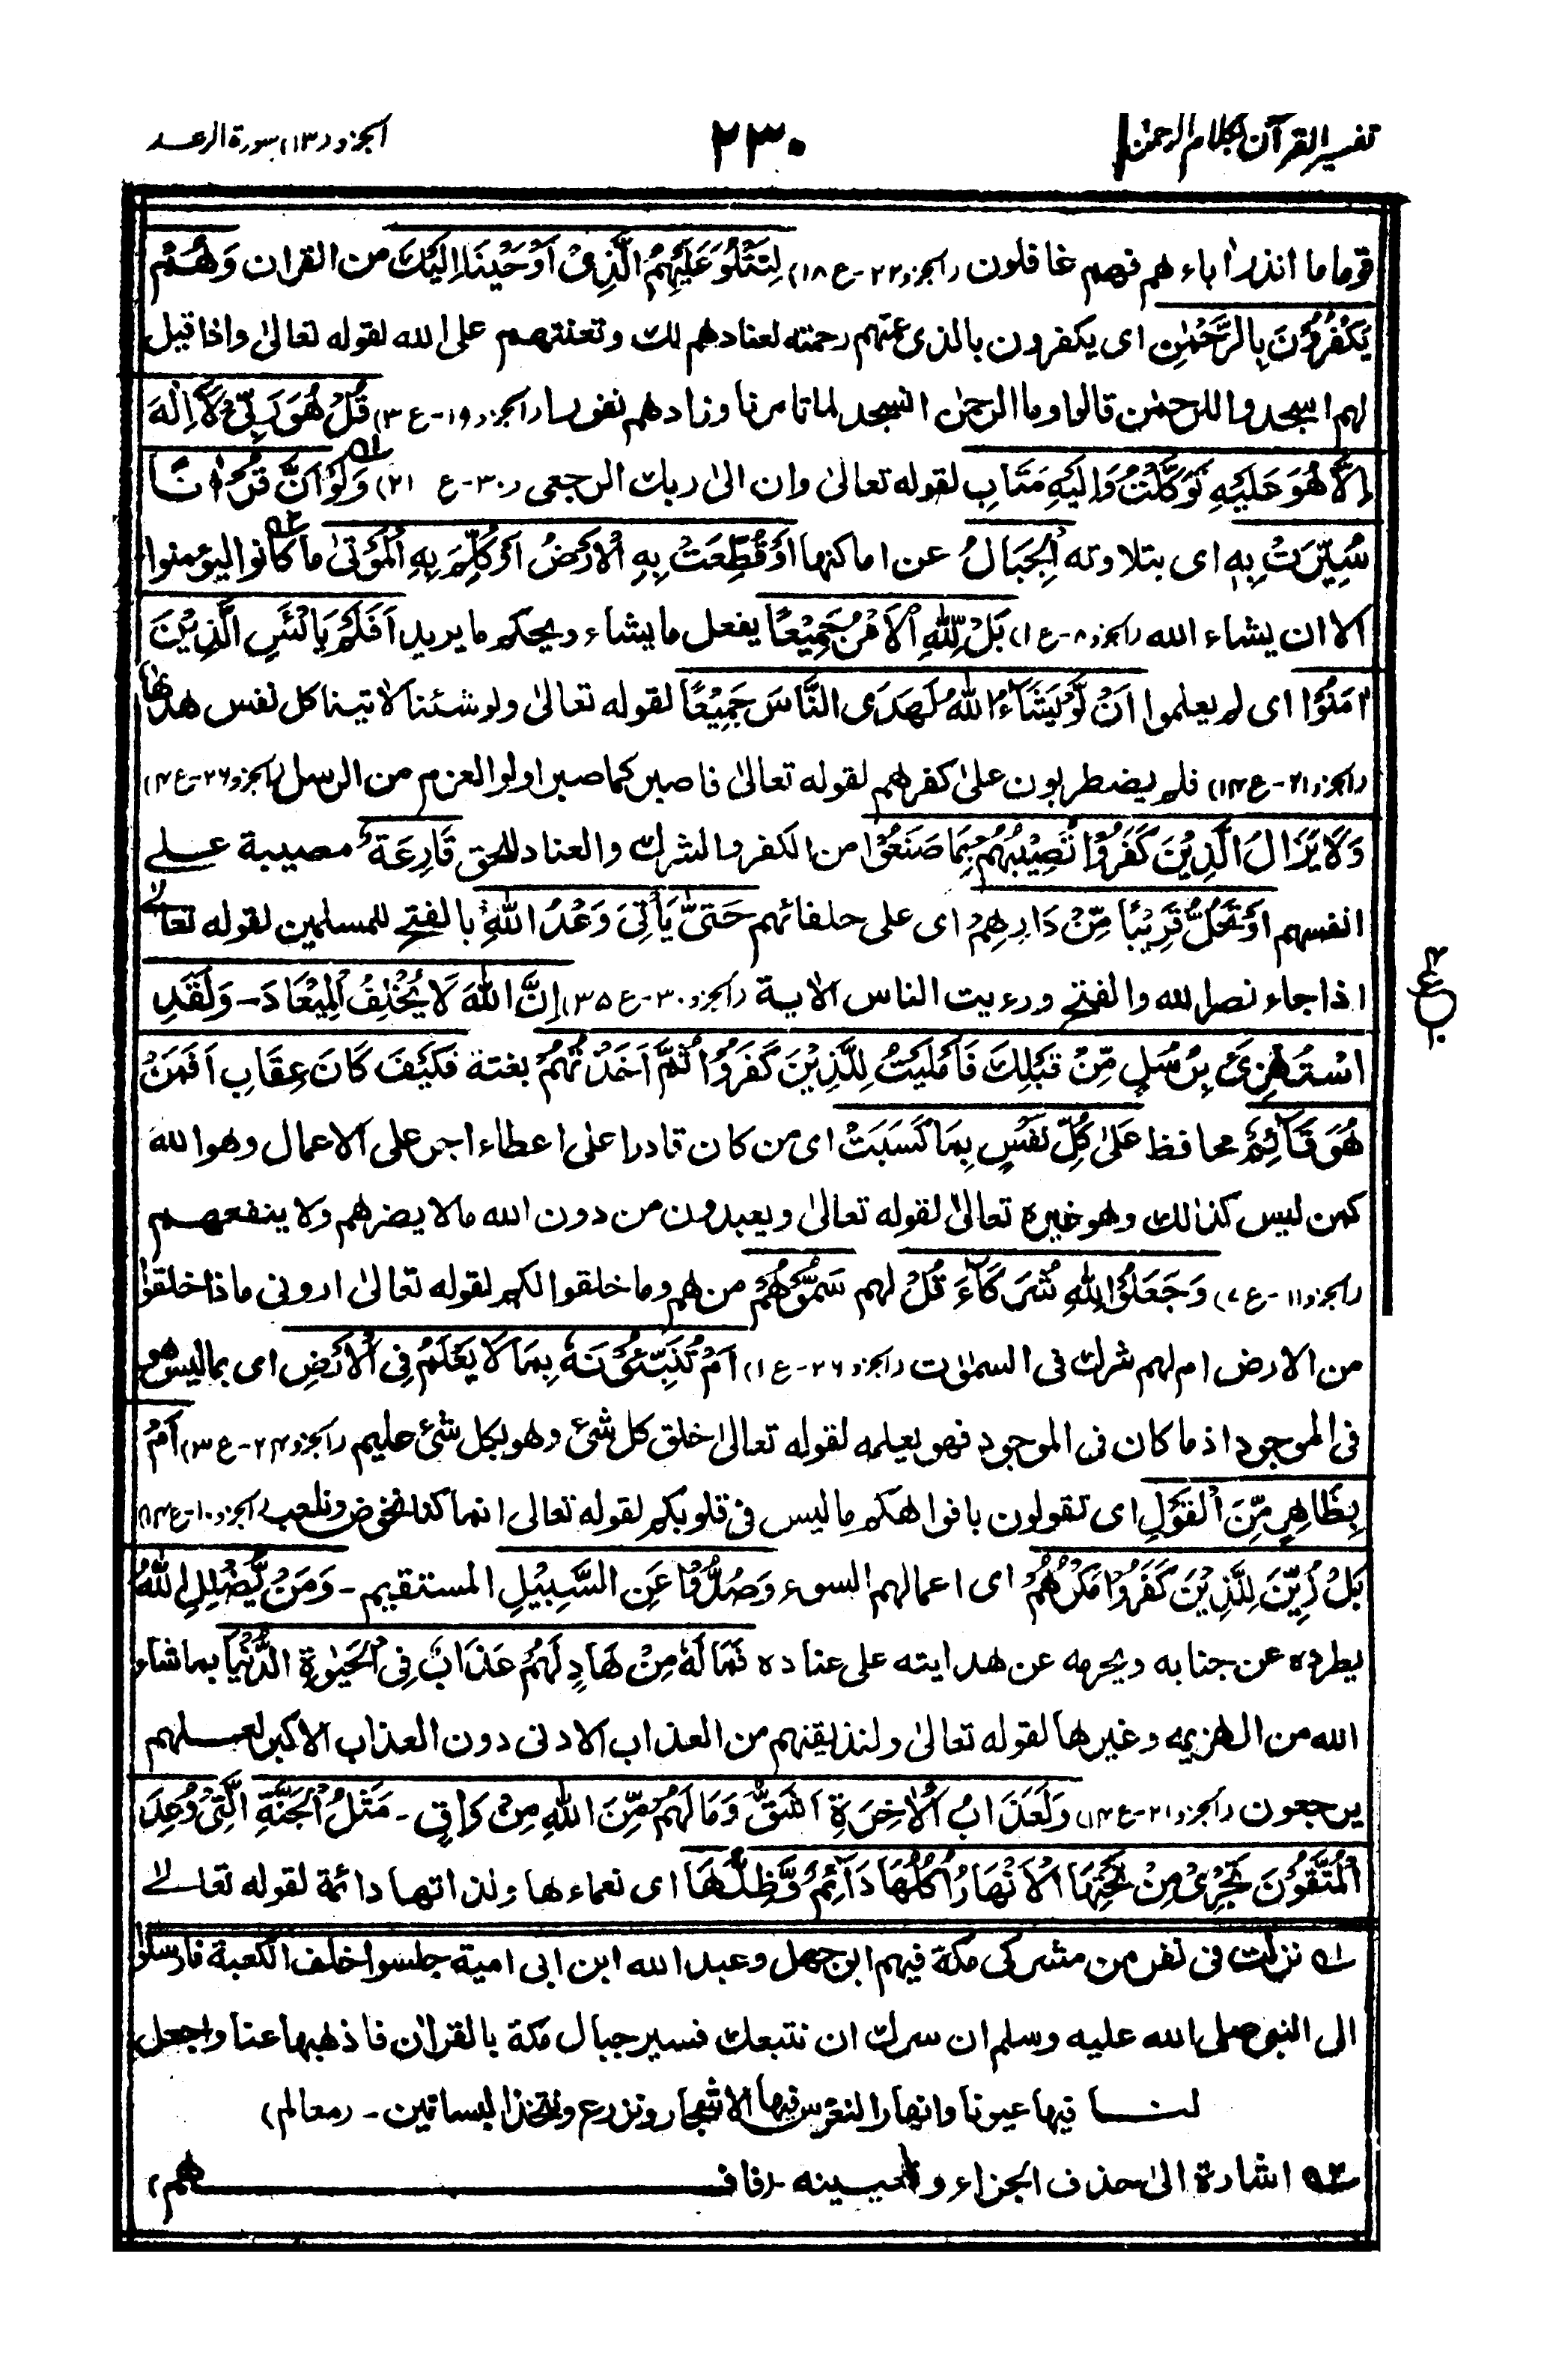 تفسير القرآن بكلام الرحمٰن
٢٣٠
الجزو (١٣) سورة الرعد
قوما ما انذر اٰباءهم فهم غافلون (الجزو ٢٢-ع ١٨) لِتَتْلُوَ عَلَيْهِمُ الَّذِىْ اَوْحَيْنَا اِلَيْكَ من القران وَهُمْ
يَكْفُرُوْنَ بِالرَّحْمٰنِ اى يكفرون بالذى عمتهم رحمته لعنادهم لك وتعنتهم على الله لقوله تعالىٰ واذا قيل
لهم اسجدوا للرحمٰن قالوا وما الرحمٰن انسجد لما تامرنا وزادهم نفورا (الجزو ١٩-ع ٣) قُلْ هُوَ رَبِّىْ لَآ اِلٰهَ
اِلَّا هُوَ عَلَيْهِ تَوَكَّلْتُ وَاِلَيْهِ مَتَابِ لقوله تعالىٰ وان الىٰ ربك الرجعى (٣٠-ع ٢١) وَلَوْ اَنَّ قُرْاٰنًا
سُيِّرَتْ بِهِ اى بتلاوته الْجِبَالُ عن اماكنها اَوْ قُطِّعَتْ بِهِ الْاَرْضُ اَوْ كُلِّمَ بِهِ الْمَوْتٰى ما كانوا ليؤمنوا
الا ان يشاء الله (الجزو ٨-ع ١) بَلْ لِّلّٰهِ الْاَمْرُ جَمِيْعًا يفعل ما يشاء ويحكم ما يريد اَفَلَمْ يَايْئَسِ الَّذِيْنَ
اٰمَنُوْا اى لم يعلموا اَنْ لَّوْ يَشَآءُ اللّٰهُ لَهَدَى النَّاسَ جَمِيْعًا لقوله تعالىٰ ولو شئنا لاٰتينا كل نفس هداها
(الجزو ٢١-ع ١٤) فلم يضطربون علىٰ كفرهم لقوله تعالىٰ فاصبر كما صبر اولوا العزم من الرسل (الجزو ٢٦-ع ٤)
وَلَا يَزَالُ الَّذِيْنَ كَفَرُوْا تُصِيْبُهُمْ بِمَا صَنَعُوْا من الكفر والشرك والعناد للحق قَارِعَةٌ مصيبة على
انفسهم اَوْ تَحُلُّ قَرِيْبًا مِّنْ دَارِهِمْ اى على حلفائهم حَتّٰى يَاْتِىَ وَعْدُ اللّٰهِ بالفتح للمسلمين لقوله تعالٰى
اذا جاء نصر الله والفتح ورءيت الناس الاٰية (الجزو ٣٠-ع ٣٥) اِنَّ اللّٰهَ لَا يُخْلِفُ الْمِيْعَادَ - وَلَقَدِ
اسْتُهْزِئَ بِرُسُلٍ مِّنْ قَبْلِكَ فَاَمْلَيْتُ لِلَّذِيْنَ كَفَرُوْا ثُمَّ اَخَذْتُهُمْ بغتة فَكَيْفَ كَانَ عِقَابِ اَفَمَنْ
هُوَ قَآئِمٌ محافظ عَلٰى كُلِّ نَفْسٍ بِمَا كَسَبَتْ اى من كان قادرا على اعطاء اجر على الاعمال وهو الله
كمن ليس كذالك وهو غيره تعالىٰ لقوله تعالىٰ ويعبدون من دون الله ما لا يضرهم ولا ينفعهم
(الجزو ١١-ع ٧) وَجَعَلُوْا لِلّٰهِ شُرَكَآءَ قُلْ لهم سَمُّوْهُمْ من هم وما خلقوا لكم لقوله تعالىٰ ارونى ماذا خلقوا
من الارض ام لهم شرك فى السمٰوٰت (الجزو ٢٦-ع ١) اَمْ تُنَبِّئُوْنَهٗ بِمَا لَا يَعْلَمُ فِى الْاَرْضِ اى بما ليس هو
فى الموجود اذ ما كان فى الموجود فهو يعلمه لقوله تعالىٰ خلق كل شئ وهو بكل شئ عليم (الجزو ٢٤-ع ٣) اَمْ
بِظَاهِرٍ مِّنَ الْقَوْلِ اى تقولون بافواهكم ما ليس فى قلوبكم لقوله تعالى انما كنا نخوض ونلعب (الجزو ١٠-ع ١٤)
بَلْ زُيِّنَ لِلَّذِيْنَ كَفَرُوْا مَكْرُهُمْ اى اعمالهم السوء وَصُدُّوْا عَنِ السَّبِيْلِ المستقيم - وَمَنْ يُّضْلِلِ اللّٰهُ
يطرده عن جنابه ويحرمه عن هدايته على عناده فَمَا لَهٗ مِنْ هَادٍ لَهُمْ عَذَابٌ فِى الْحَيٰوةِ الدُّنْيَا بما شاء
الله من الهزيمه وغيرها لقوله تعالىٰ ولنذيقنهم من العذاب الادنى دون العذاب الاكبر لعلهم
يرجعون (الجزو ٢١-ع ١٤) وَلَعَذَابُ الْاٰخِرَةِ اَشَقُّ وَمَا لَهُمْ مِّنَ اللّٰهِ مِنْ وَّاقٍ - مَثَلُ الْجَنَّةِ الَّتِىْ وُعِدَ
الْمُتَّقُوْنَ تَجْرِىْ مِنْ تَحْتِهَا الْاَنْهَارُ اُكُلُهَا دَآئِمٌ وَّظِلُّهَا اى نعماءها ولذاتها دائمة لقوله تعالٰى
ع
١٠
له نزلت فى نفر من مشركى مكة فيهم ابو جهل وعبد الله ابن ابى امية جلسوا خلف الكعبة فارسلوا
الى النبى صلى الله عليه وسلم ان سرك ان نتبعك فسير جبال مكة بالقراٰن فاذهبها عنا واجعل
لنا فيها عيونا وانهارا لنغرس فيها الاشجار ونزرع ونتخذ البساتين - (معالم)
٢ه اشارة الىٰ حذف الجزاء و (فافهم)